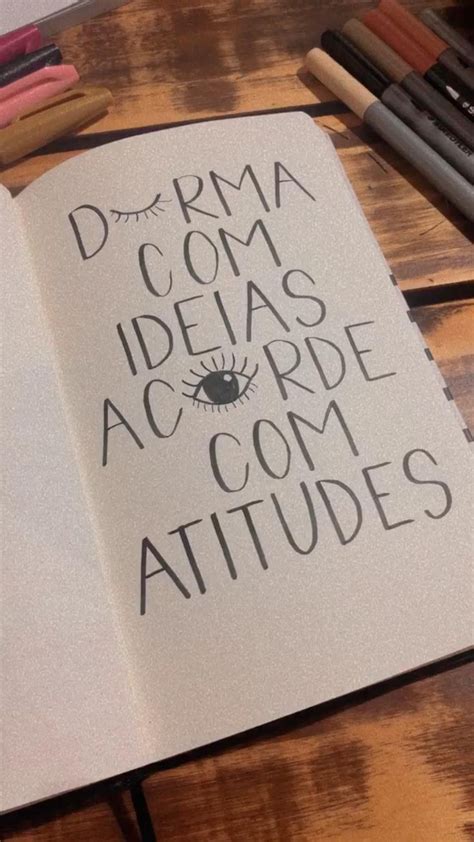 DORMA
COM
IDEIAS
ACORDE
COM
ATITUDES